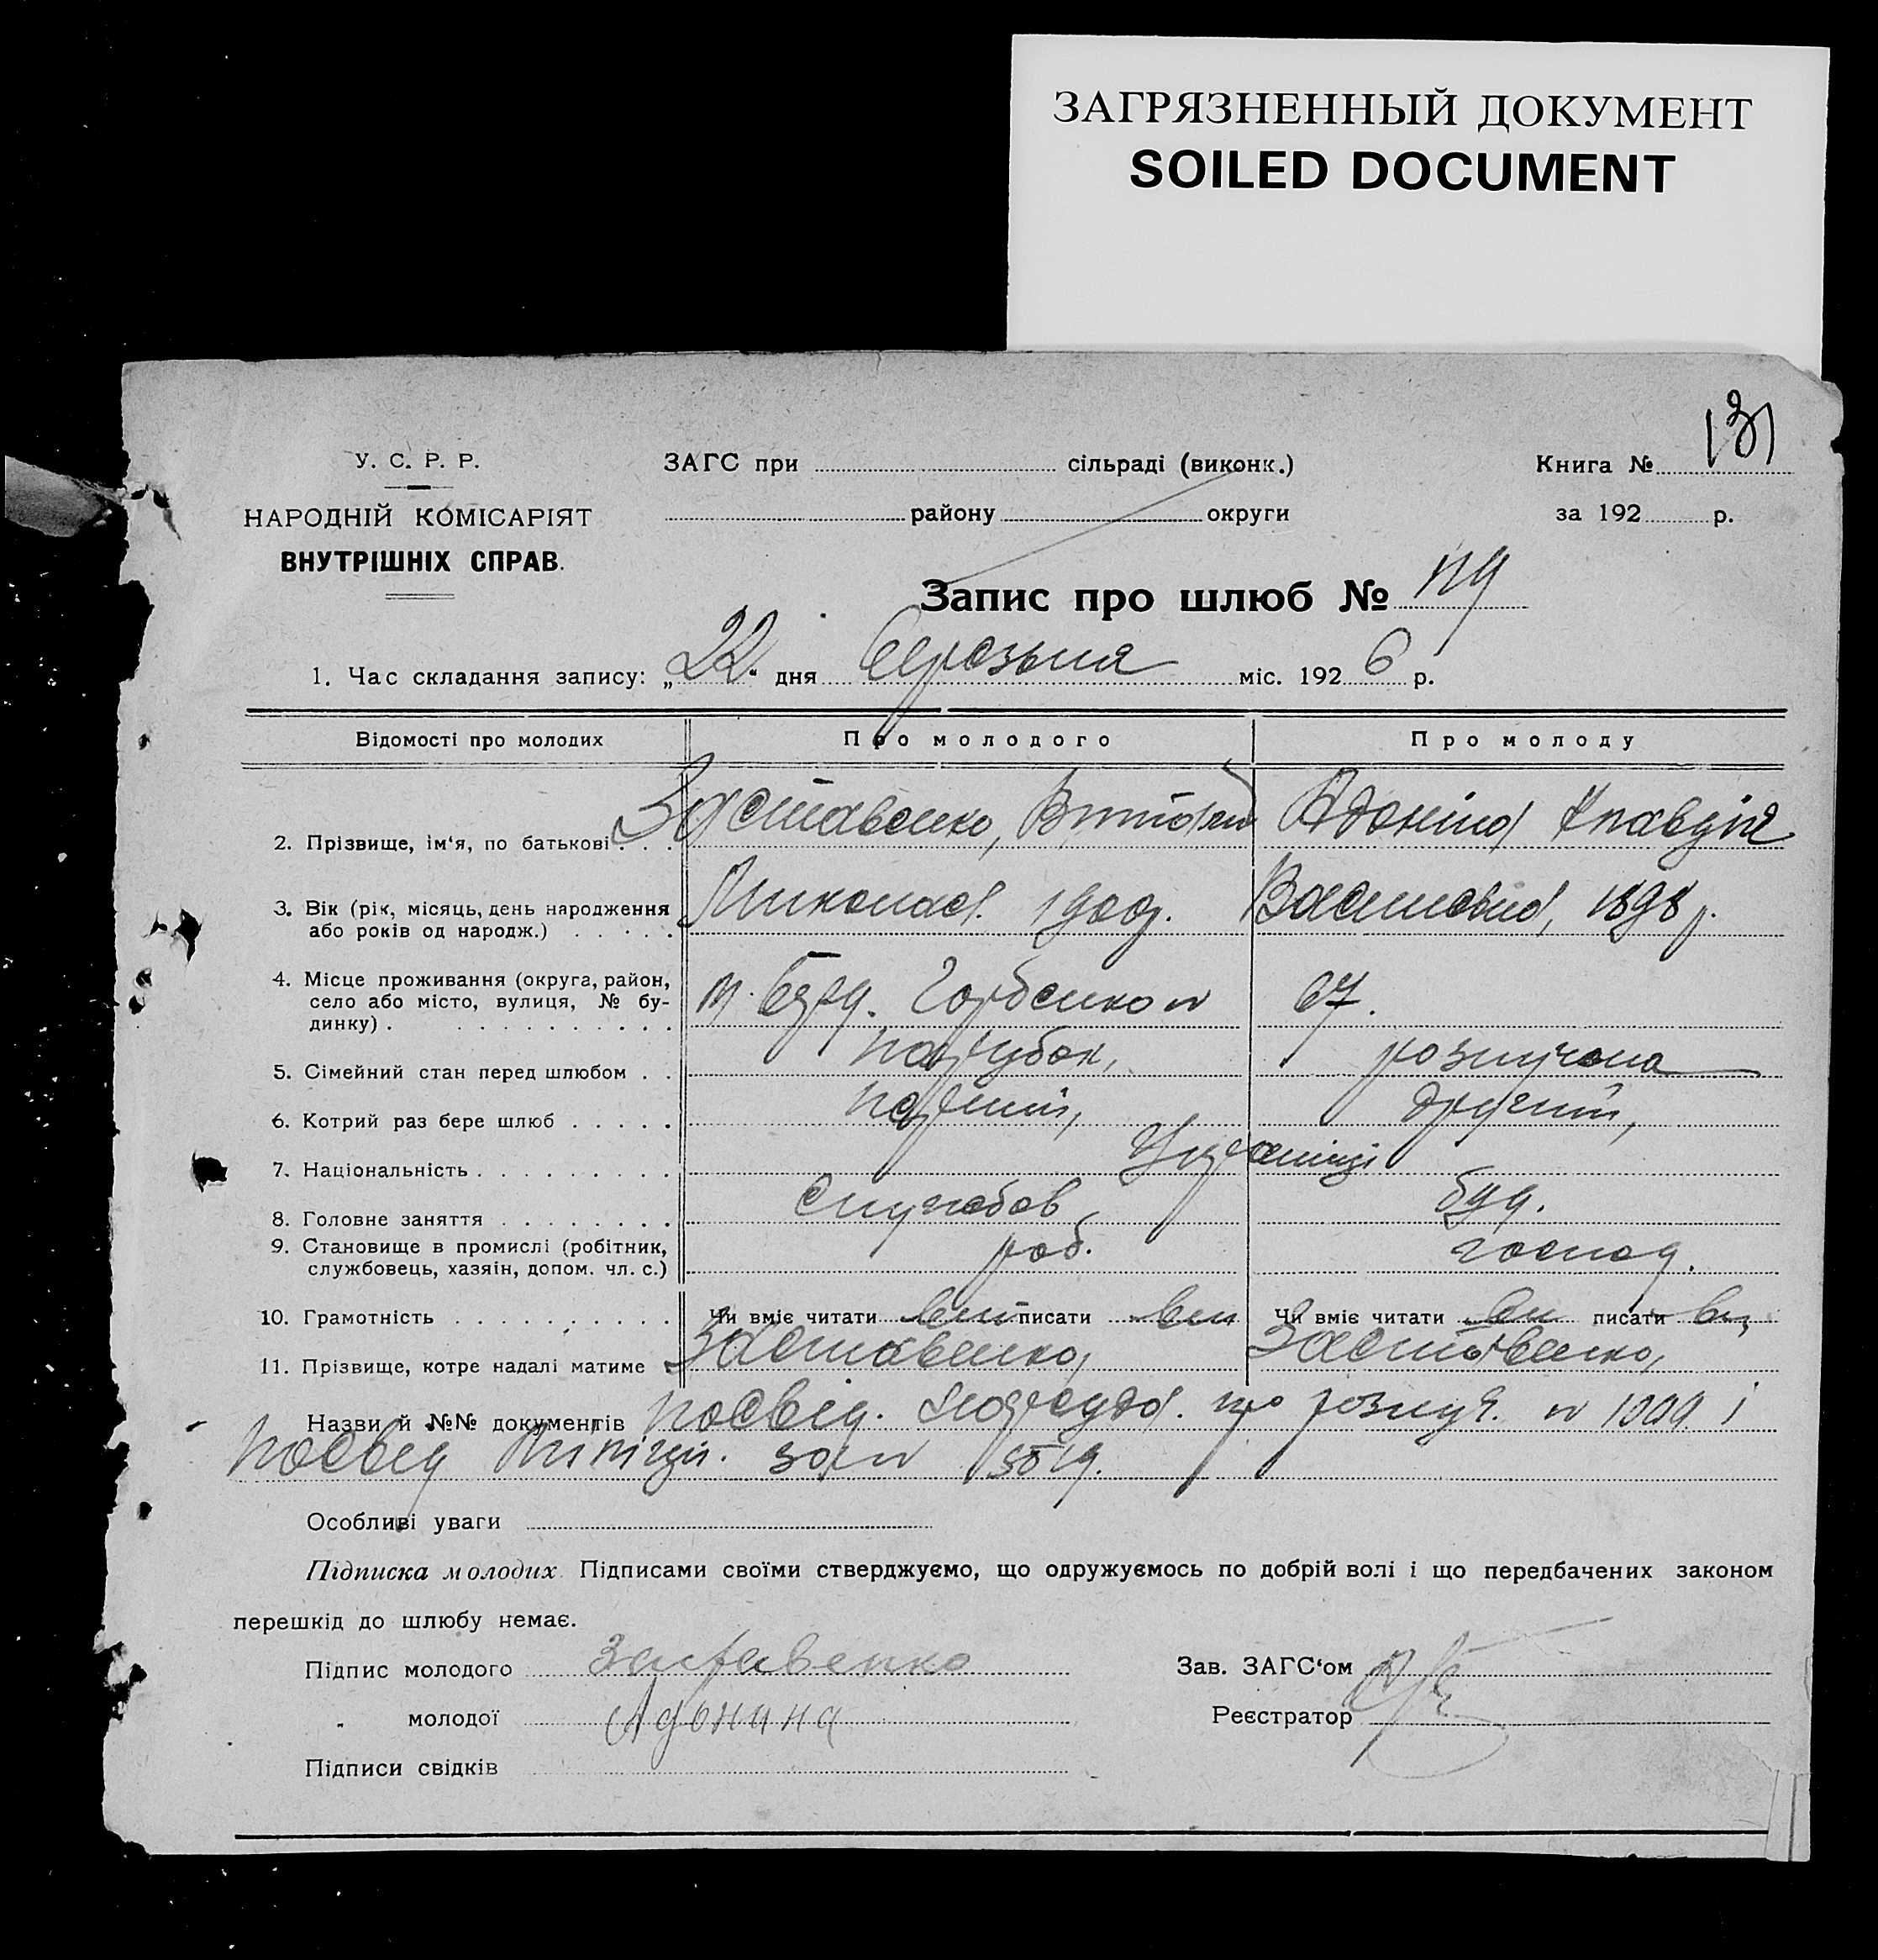 ЗАГРЯЗНЕННЫЙ ДОКУМЕНТ
SOILED DOCUMENT
131
У. С. Р. Р.
НАРОДНІЙ КОМІСАРІЯТ
ВНУТРІШНІХ СПРАВ.
ЗАГС при сільраді (виконк.)
району округи
Книга №
за 192 р.
Запис про шлюб №
1. Час складання запису: „22" дня березьня міс. 1926 р.
Відомості про молодих Про молодого Про молоду
2. Прізвище, ім'я, по батькові . . . Заставенко, Адоніна Клавдія
3. Вік (рік, місяць, день народження
або років од народж.) . . . . . Миколаєв. 1900р. Василівна, 1898 р.
4. Місце проживання (округа, район,
село або місто, вулиця, № бу-
динку) . . . . . . . . . . . Горбенко № 67.
5. Сімейний стан перед шлюбом . . парубок, розлучена
6. Котрий раз бере шлюб . . . . . перший, другий,
7. Національність . . . . . . . . Українці
8. Головне заняття . . . . . . . . службов
9. Становище в промислі (робітник,
службовець, хазяїн, допом. чл. с.) роб. господ.
10. Грамотність . . . . . . . . . . Чи вміє читати вм писати вм Чи вміє читати вм писати вм
11. Прізвище, котре надалі матиме Заставенко, Заставенко,
Назви й №№ документів посвід. нарсуда. про розлуч. і
посвід Міліції. за №
Особливі уваги
Підписка молодих. Підписами своїми стверджуємо, що одружуємось по добрій волі і що передбачених законом
перешкід до шлюбу немає.
Підпис молодого Заставенко Зав. ЗАГС'ом
„ молодої Адонина Реєстратор
Підписи свідків